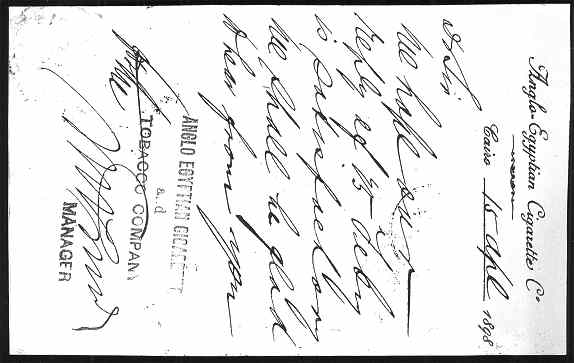 Anglo-Egyptian Cigarette Co
Cairo 15 Apl 1898
Dr Sir
We hope our
reply of 15 Feby
is satisfactory
We shall be glad
to hear from you
ANGLO EGYPTIAN CIGARETTE
a.d
TOBACCO COMPANY
MANAGER